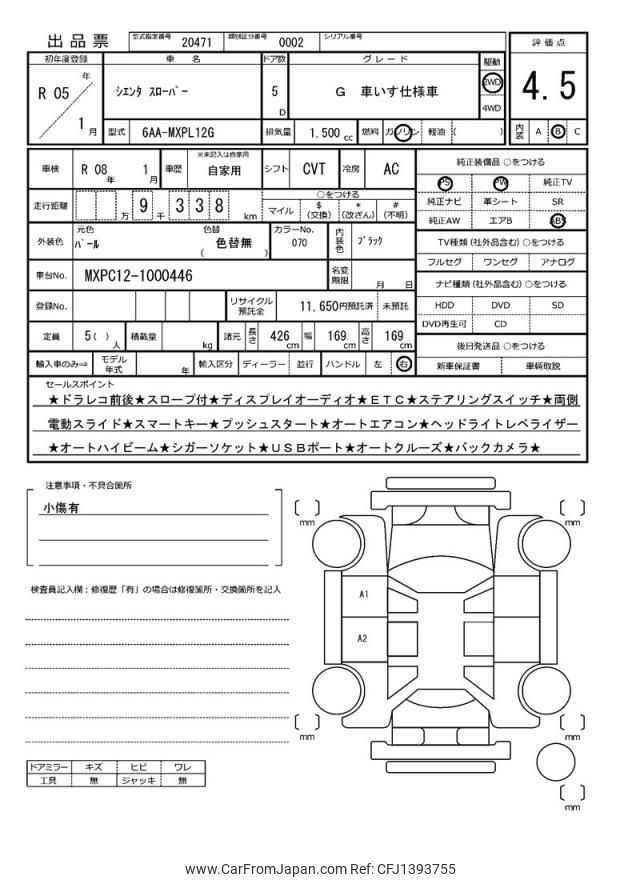 出品票 型式指定番号 20471 類別区分番号 0002 シリアル番号
評価点
4.5
内装 A B C
初年度登録 車名 ドア数 グレード 駆動
R 05 年 1 月
シエンタ スローパー 5 D G 車いす仕様車 2WD 4WD
型式 6AA-MXPL12G 排気量 1.500 cc 燃料 ガソリン 軽油 ( )
車検 R 08 年 1 月 車歴 ※未記入は自家用 自家用 シフト CVT 冷房 AC
走行距離 万 9 千 3 3 8 km
○をつける
マイル $(交換) *(改ざん) #(不明)
外装色 元色 パール 色替 ( 色替無 ) カラーNo. 070 内装色 ブラック
車台No. MXPC12-1000446 名変期限 月 日
登録No. リサイクル預託金 11,650円預託済 未預託
定員 5( ) 人 積載量 kg 諸元 長さ 426 cm 幅 169 cm 高さ 169 cm
輸入車のみ⇒ モデル年式 年 輸入区分 ディーラー 並行 ハンドル 左 右
純正装備品 ○をつける
PS PW 純正TV
純正ナビ 革シート SR
純正AW エアB ABS
TV種類(社外品含む)○をつける
フルセグ ワンセグ アナログ
ナビ種類(社外品含む)○をつける
HDD DVD SD
DVD再生可 CD
後日発送品 ○をつける
新車保証書 車輌取説
セールスポイント
★ドラレコ前後★スロープ付★ディスプレイオーディオ★ETC★ステアリングスイッチ★両側
電動スライド★スマートキー★プッシュスタート★オートエアコン★ヘッドライトレベライザー
★オートハイビーム★シガーソケット★USBポート★オートクルーズ★バックカメラ★
注意事項・不具合箇所
小傷有
検査員記入欄:修復歴「有」の場合は修復箇所・交換箇所を記入
ドアミラー キズ ヒビ ワレ
工具 無 ジャッキ 無
[ ] mm
[ ] mm
A1
A2
[ ] mm
[ ] mm
[ ] mm
www.CarFromJapan.com Ref: CFJ1393755